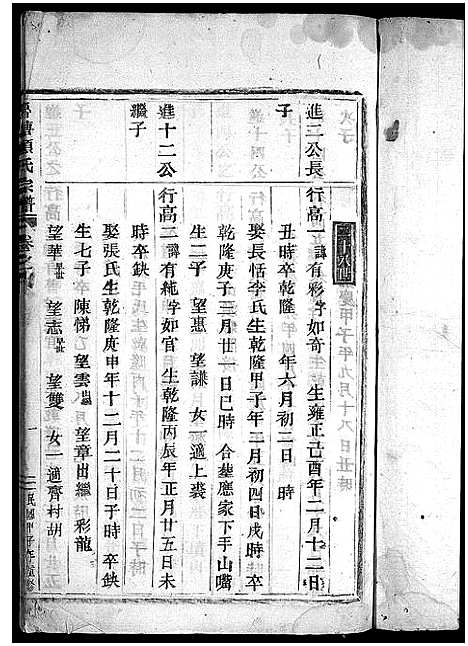 二十八世
進二公長
子
行高一諱有彩字如奇 生雍正己酉年二月十二日
丑時卒乾隆 年六月初二日 時
娶長恬李氏生乾隆甲子年二月初四日戌時卒
乾隆庚子三月廿一日巳時 合墓應家下手山嘴
生二子 望惠 望謙 女一適上裘
進十二公
繼子
行高二諱有純字如官 生乾隆丙辰年正月廿五日未
時卒缺
娶張氏生乾隆庚申年十二月二十日子時 卒缺
生七子 陳悌 望雲 望章出繼 彩龍
望華早世 望志早世 望雙 女一適齊村胡
項氏宗譜
卷之
一
民國甲子年重修